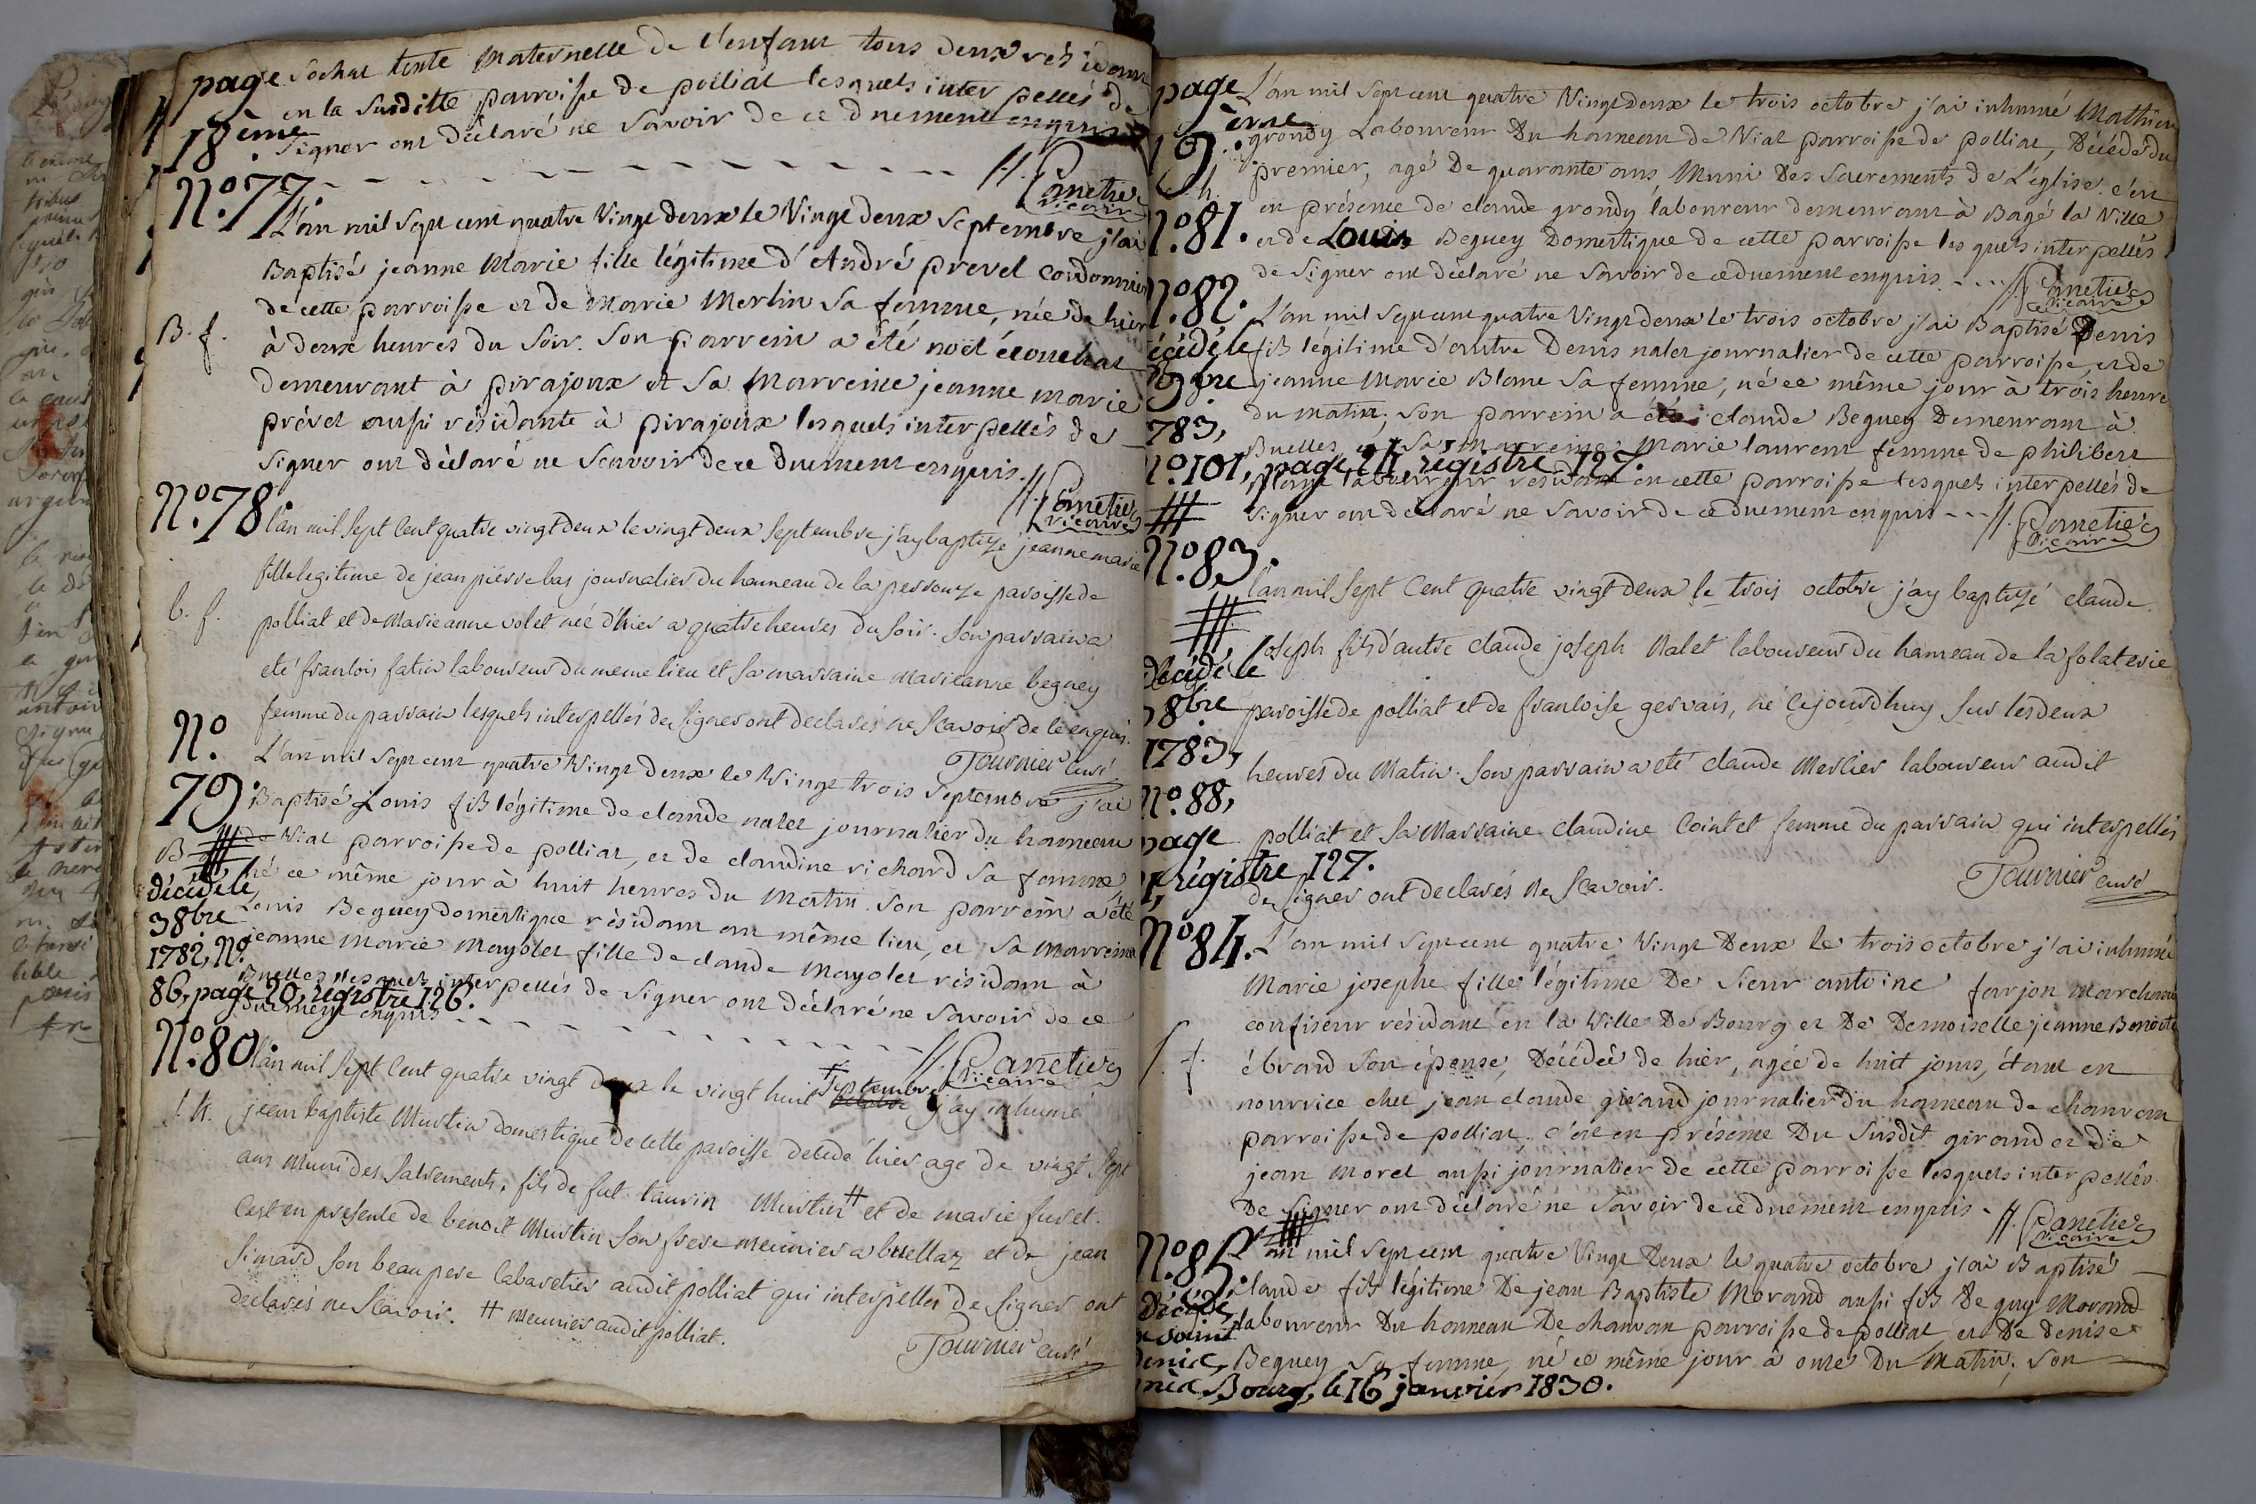 page sochat tente Maternelle de l'enfant tous deux résidant
18ème. en la Susditte parroisse de polliat lesquels inter pellés de
signer ont déclaré ne savoir de ce duement enquis
H. Canetier
Vicaire
N.º 77. L'an mil sept cent quatre Vingt deux le Vingt deux Septembre j'ai
Baptisé jeanne Marie fille légitime d'André prevel cordonnier
de cette parroisse et de Marie Merlin sa femme, née de hier
B. f. à deux heures du soir. Son parrein a été noël
demeurant à pirajoux et sa Marreine jeanne marie
prével aussi résidante à pirajoux lesquels interpellés de
signer ont déclaré ne Scavoir de ce duement enquis.
H. Canetier
Vicaire
N.º 78. l'an mil sept Cent quatre vingt deux le vingt deux septembre j'ay baptizé jeanne marie
fille legitime de jean pierre bas journalier du hameau de la perrouze paroisse de
b. f. polliat et de Marie anne volet née d'hier a quatre heures du soir. son parrain a
eté francois fatin laboureur du meme lieu et sa marraine marieanne beguey
femme du parrain lesquels interpellés de signer ont declarés ne Scavoir de ce enquis.
Tournier curé
N.º 79. L'an mil sept cent quatre Vingt deux le Vingt trois Septembre j'ai
Baptisé Louis fils légitime de claude nalet journalier du hameau
B de Viat parroisse de polliat, et de claudine richard sa femme,
né ce même jour à huit heures du Matin. Son parrein a été
Louis Beguey domestique résidant au même lieu, et sa Marreine
jeanne Marie Mayolet fille de claude Mayolet résidant à
Buelles lesquels interpellés de signer ont déclaré ne savoir de ce
duement enquis
décédé le
3 8bre
1782, N.º
86, page 20, régistre 126.
H. Canetier
Vicaire
N.º 80. l'an mil sept Cent quatre vingt deux le vingt huit septembre j'ay inhumé
jean baptiste Mustin domestique de cette paroisse decedé hier agé de vingt sept
ans muni des Sacrements, fils de fut taurin Mustin # et de marie furet.
C'est en presence de benoit Mustin son frere meunier a buellaz et de jean
simard son beau pere Cabaretier audit polliat qui interpellés de signer ont
declarés ne Scavoir. # meunier audit polliat.
Tournier curé
page 19ème. L'an mil sept cent quatre Vingt deux le trois octobre j'ai inhumé Mathieu
grondy Laboureur Du hameau de Viat parroisse de polliat, Décédé du
premier, agé De quarante ans Muni Des Sacrements de L'église. c'en
N.º 81. en présence de claude grondy laboureur demeurant à Bagé la Ville
et de Louis Beguey Domestique de cette parroisse lesquels interpellés
de Signer ont déclaré ne savoir de ce duement enquis.
H. Canetier
Vicaire
N.º 82. L'an mil sept cent quatre Vingt deux le trois octobre j'ai Baptisé Denis
fils légitime d'autre Denis nalet journalier de cette parroisse, et de
jeanne Marie Blanc sa femme, né ce même jour à trois heure
du matin; son parrein a été claude Beguey Demeurant à
Buelles, et sa Marreine Marie laurent femme de philibert
laboureur résidant en cette parroisse lesquels interpellés de
signer ont déclaré ne savoir de ce duement enquis
décédé le
9bre
1783,
N.º 101, page 24, régistre 127.
H. Canetier
Vicaire
N.º 83. l'an mil sept Cent quatre vingt deux le trois octobre j'ay baptizé claude
joseph fils d'autre claude joseph Nalet laboureur du hameau de la folaterie
paroisse de polliat et de francoise gervais, né Cejourdhuy sur les deux
heures du Matin. son parrain a eté claude Merlier laboureur audit
polliat et sa Marraine claudine Cointet femme du parrain qui interpellés
de signer ont declarés ne scavoir.
Tournier curé
décédé le
8bre
1783,
N.º 88,
page
régistre 127.
N.º 84. L'an mil sept cent quatre Vingt Deux le trois octobre j'ai inhumé
Marie josephe fille légitime De Sieur antoine farjon Marchand
confiseur résidant en la Ville De Bourg et De Demoiselle jeanne Benoite
ébrard son épouse, Décédée de hier, agée de huit jours, étant en
nourrice chez jean claude girand journalier du hameau de chanvent
parroisse de polliat. c'est en présence Du Susdit girand et de
jean Morel aussi journalier de cette parroisse lesquels interpellés
De Signer ont déclaré ne savoir de ce duement enquis -
H. Canetier
Vicaire
N.º 85. L'an mil sept cent quatre Vingt Deux le quatre octobre j'ai Baptisé
claude fils légitime De jean Baptiste Morand aussi fils De guy Morand
laboureur Du hameau De chanvan parroisse de polliat et De denise
Beguey sa femme, né ce même jour à onze Du Matin; son
Décédé
à Saint
Denis,
près Bourg, le 16 janvier 1830.